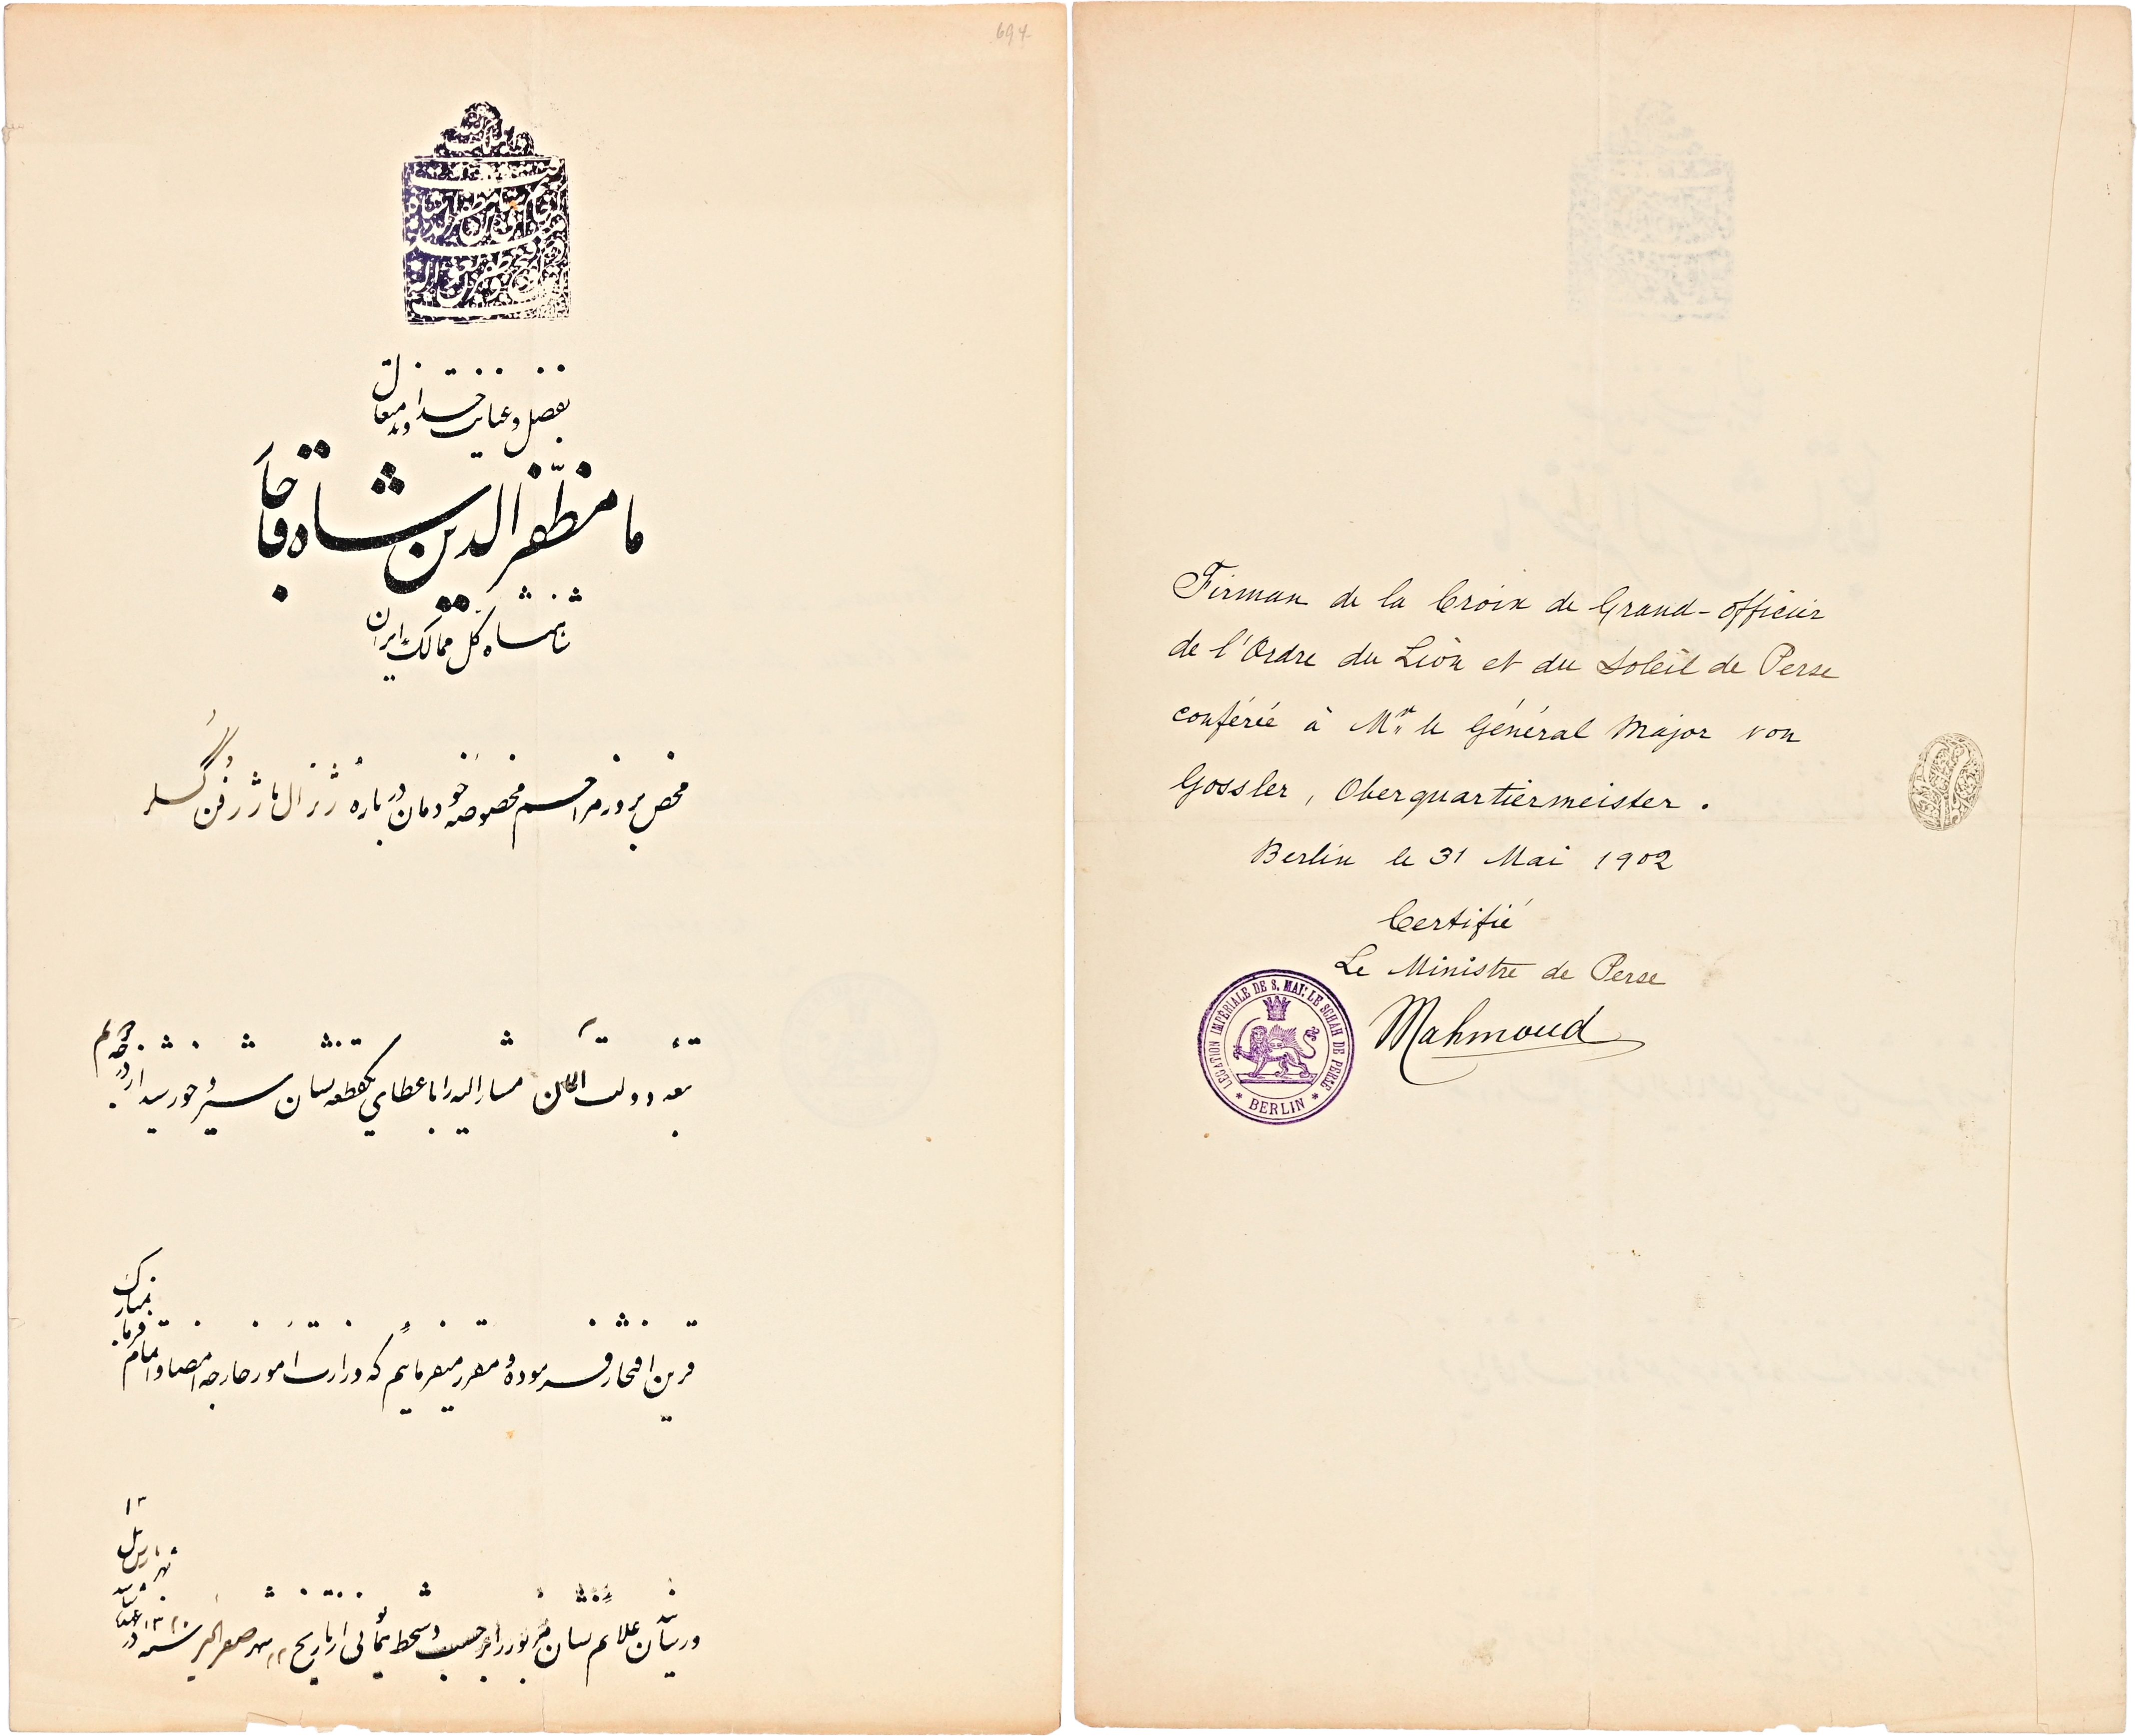 694
بفضل و عنایت خداوند متعال
ما مظفّرالدین شاه قاجار
شاهنشاه کل ممالک ایران
محض بروز مراحم مخصوصه خودمان درباره ژنرال ماژر فن گسلر
تبعه دولت آلمان مشارالیه را باعطای یکقطعه نشان شیر و خورشید از درجه دویم
قرین افتخار فرموده و مقرر میفرمائیم که وزارت امور خارجه امضا و امام فرمان مبارک
و رسائل علائم نشان مزبور را بر حسب دستخط همایونی از تاریخ شهر صفر الخیر سنه ۱۳۲۰
Firman de la Croix de Grand-officier
de l'Ordre du Lion et du Soleil de Perse
conférée à Mr. le Général Major von
Gossler, Oberquartiermeister.
Berlin le 31 Mai 1902
Certifié
Le Ministre de Perse
Mahmoud
LEGATION IMPÉRIALE DE S. MAJ: LE SCHAH DE PERSE
* BERLIN *